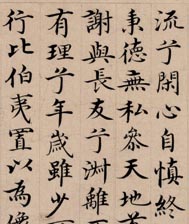 流兮閑心自慎終
秉德無私參天地
謝與長友兮淑離不
有理兮年歲雖少可
行比伯夷置以為像